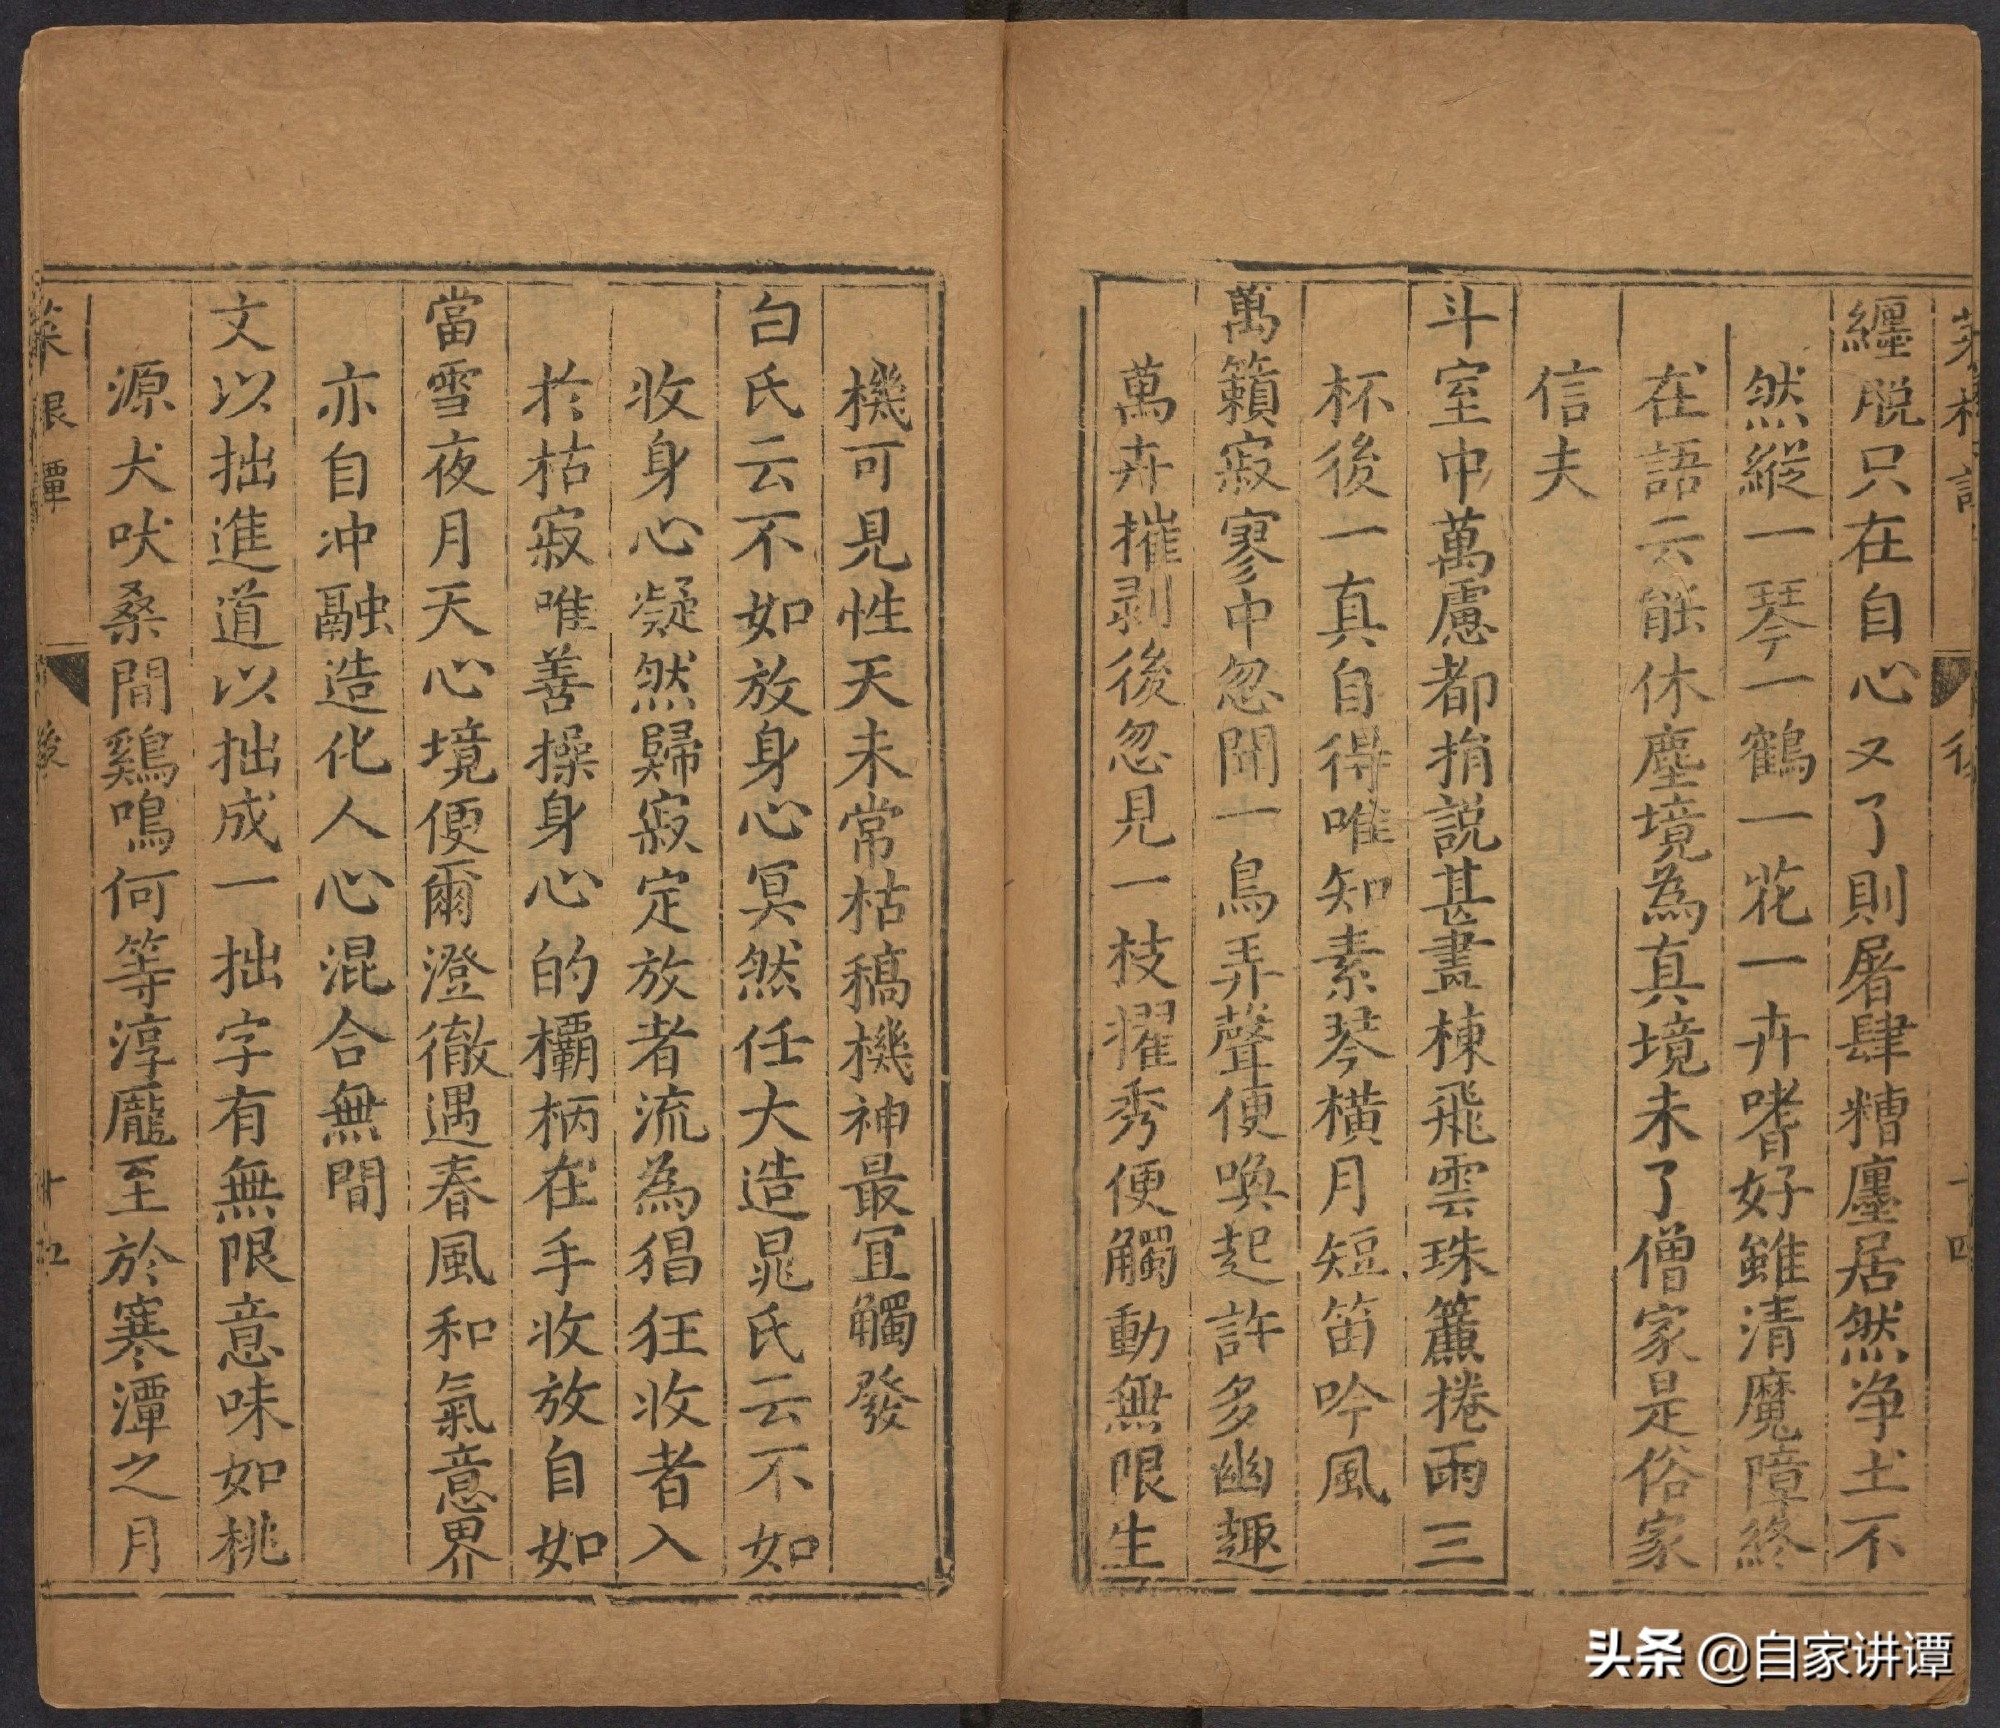 纏脱只在自心又了則屠肆糟廛居然净土不
然縱一琴一鶴一花一卉嗜好雖清魔障終
在語云能休塵境為真境未了僧家是俗家
信夫
斗室中萬慮都捐説甚畫棟飛雲珠簾捲雨三
杯後一真自得唯知素琴横月短笛吟風
萬籟寂寥中忽聞一鳥弄聲便喚起許多幽趣
萬卉摧剥後忽見一枝擢秀便觸動無限生
機可見性天未常枯稿機神最冝觸發
白氏云不如放身心冥然任大造晁氏云不如
收身心凝然歸寂定放者流為猖狂收者入
於枯寂唯善操身心的欛柄在手收放自如
當雪夜月天心境便爾澄徹遇春風和氣意界
亦自冲融造化人心混合無間
文以拙進道以拙成一拙字有無限意味如桃
源犬吠桑間鷄鳴何等淳龐至於寒潭之月
菜根譚 後
头条 @自家讲谭